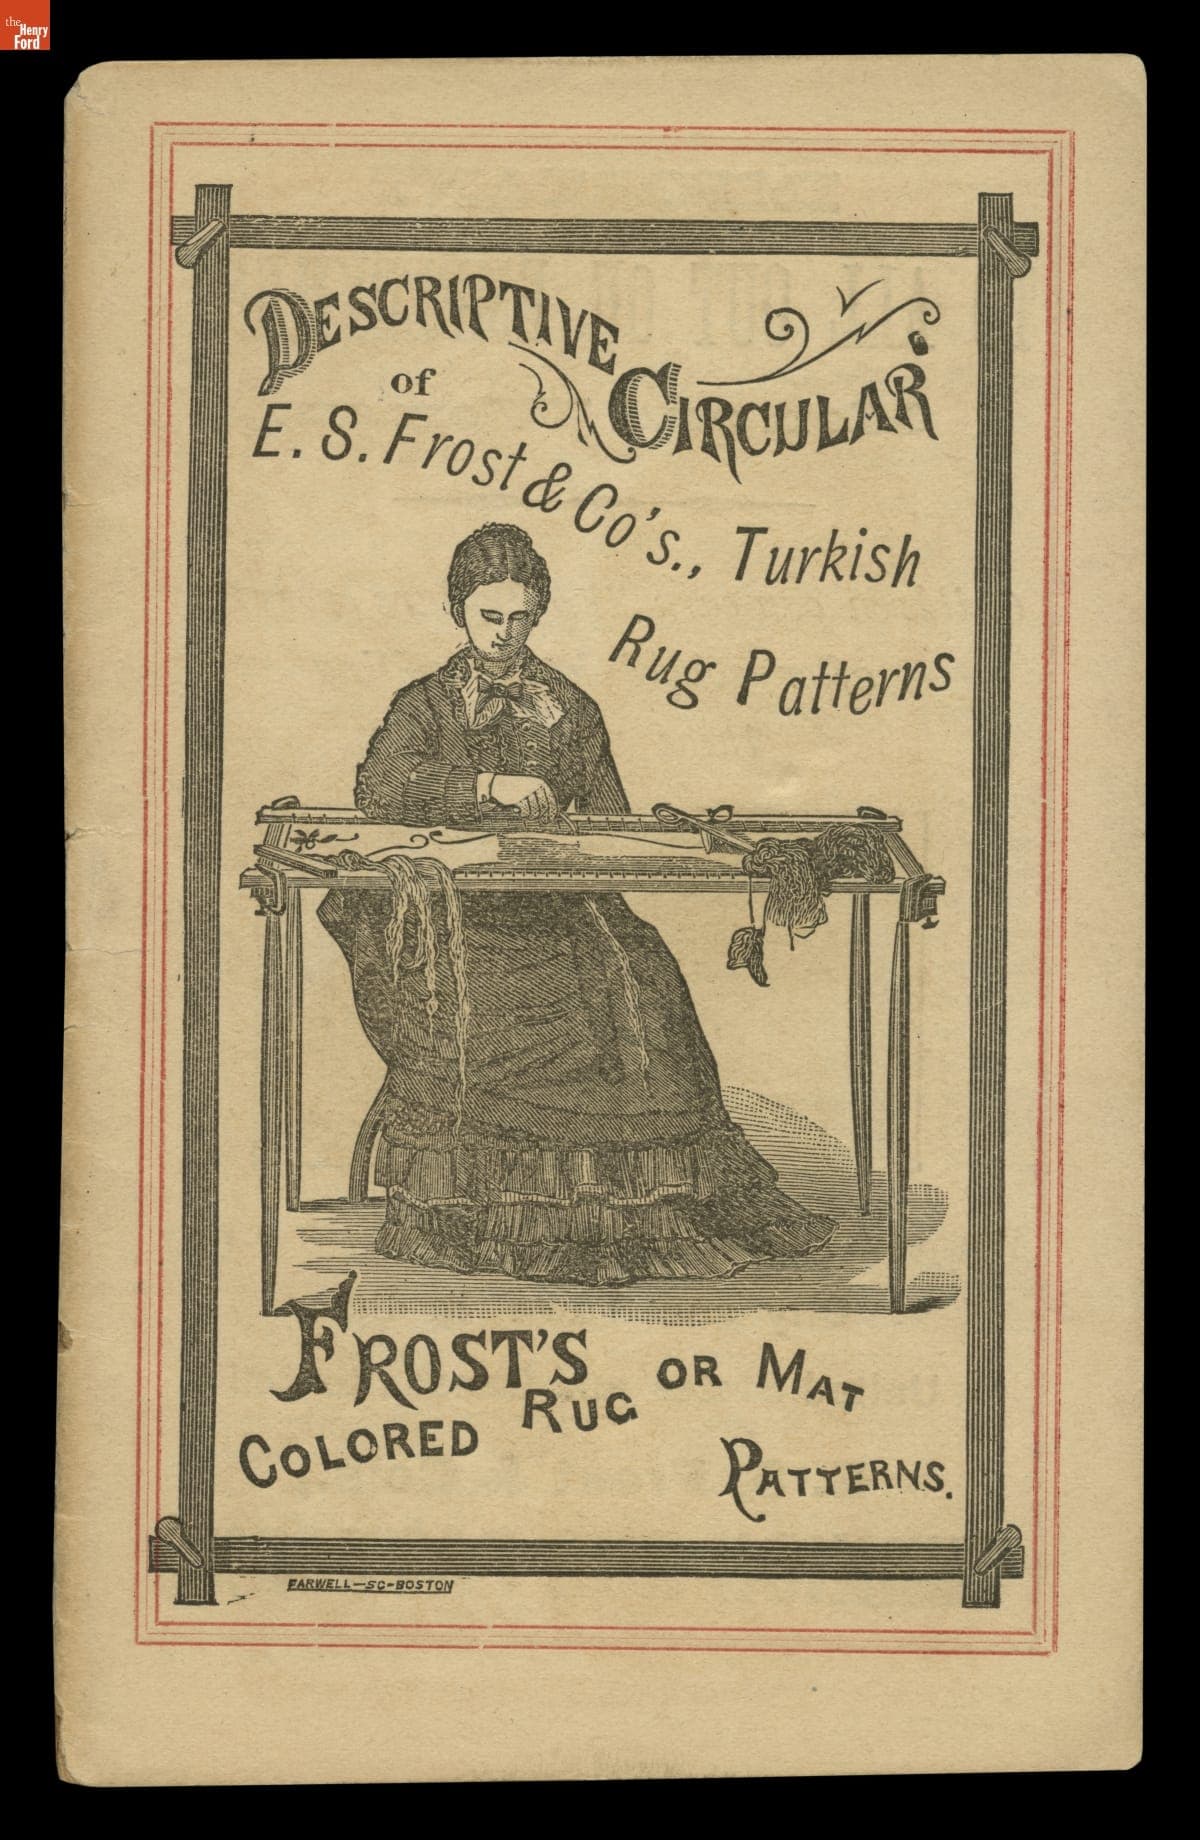 the
Henry
Ford
DESCRIPTIVE
CIRCULAR
of
E. S. Frost & Co's., Turkish
Rug Patterns
FROST'S
COLORED RUG OR MAT
PATTERNS.
FARWELL—SC—BOSTON